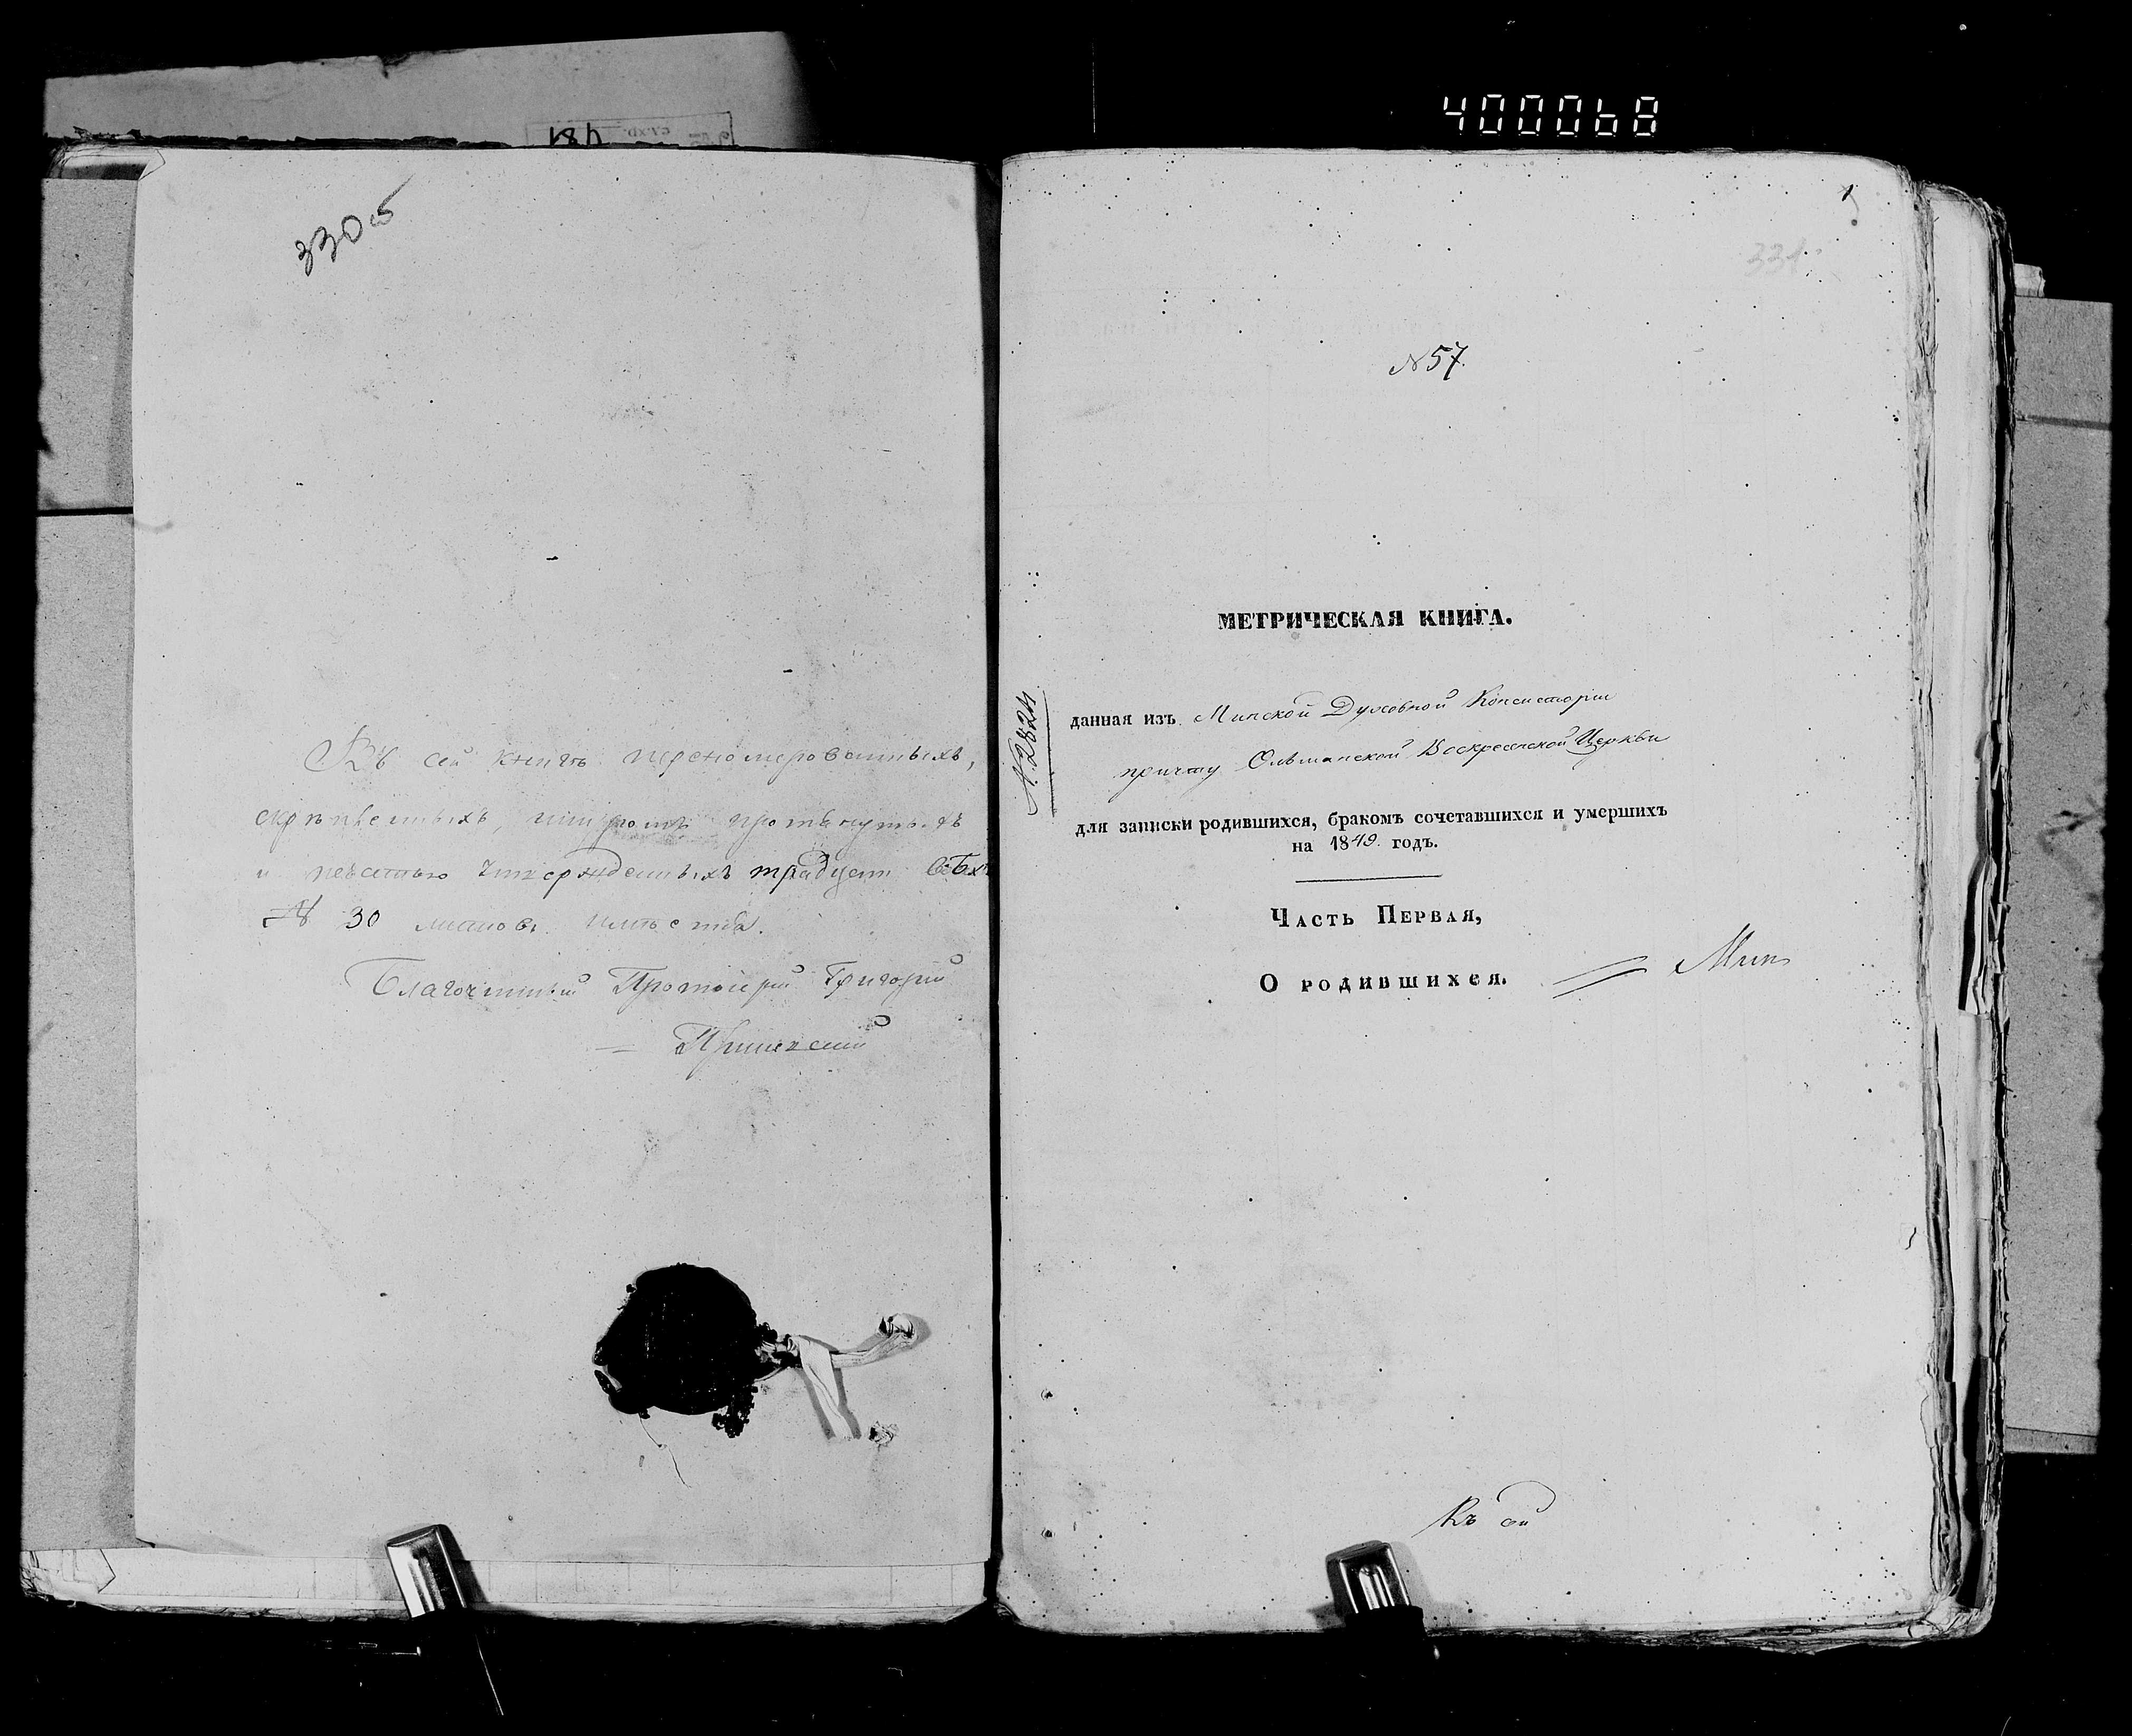 4000068
330 об
Въ сей книгѣ перенумерованныхъ,
скрѣпленныхъ, шнуромъ протянутыхъ
и печатью утвержденныхъ тридцать
№ 30 листовъ.
Благочинный Протоіерей Григорій
1
331
№ 57.
МЕТРИЧЕСКАЯ КНИГА.
№ 2824
данная изъ Минской Духовной Консисторіи
причту Ольманской Воскресенской Церкви
для записки родившихся, бракомъ сочетавшихся и умершихъ
на 1849. годъ.
Часть Первая,
О родившихся.
Мин
Къ сей